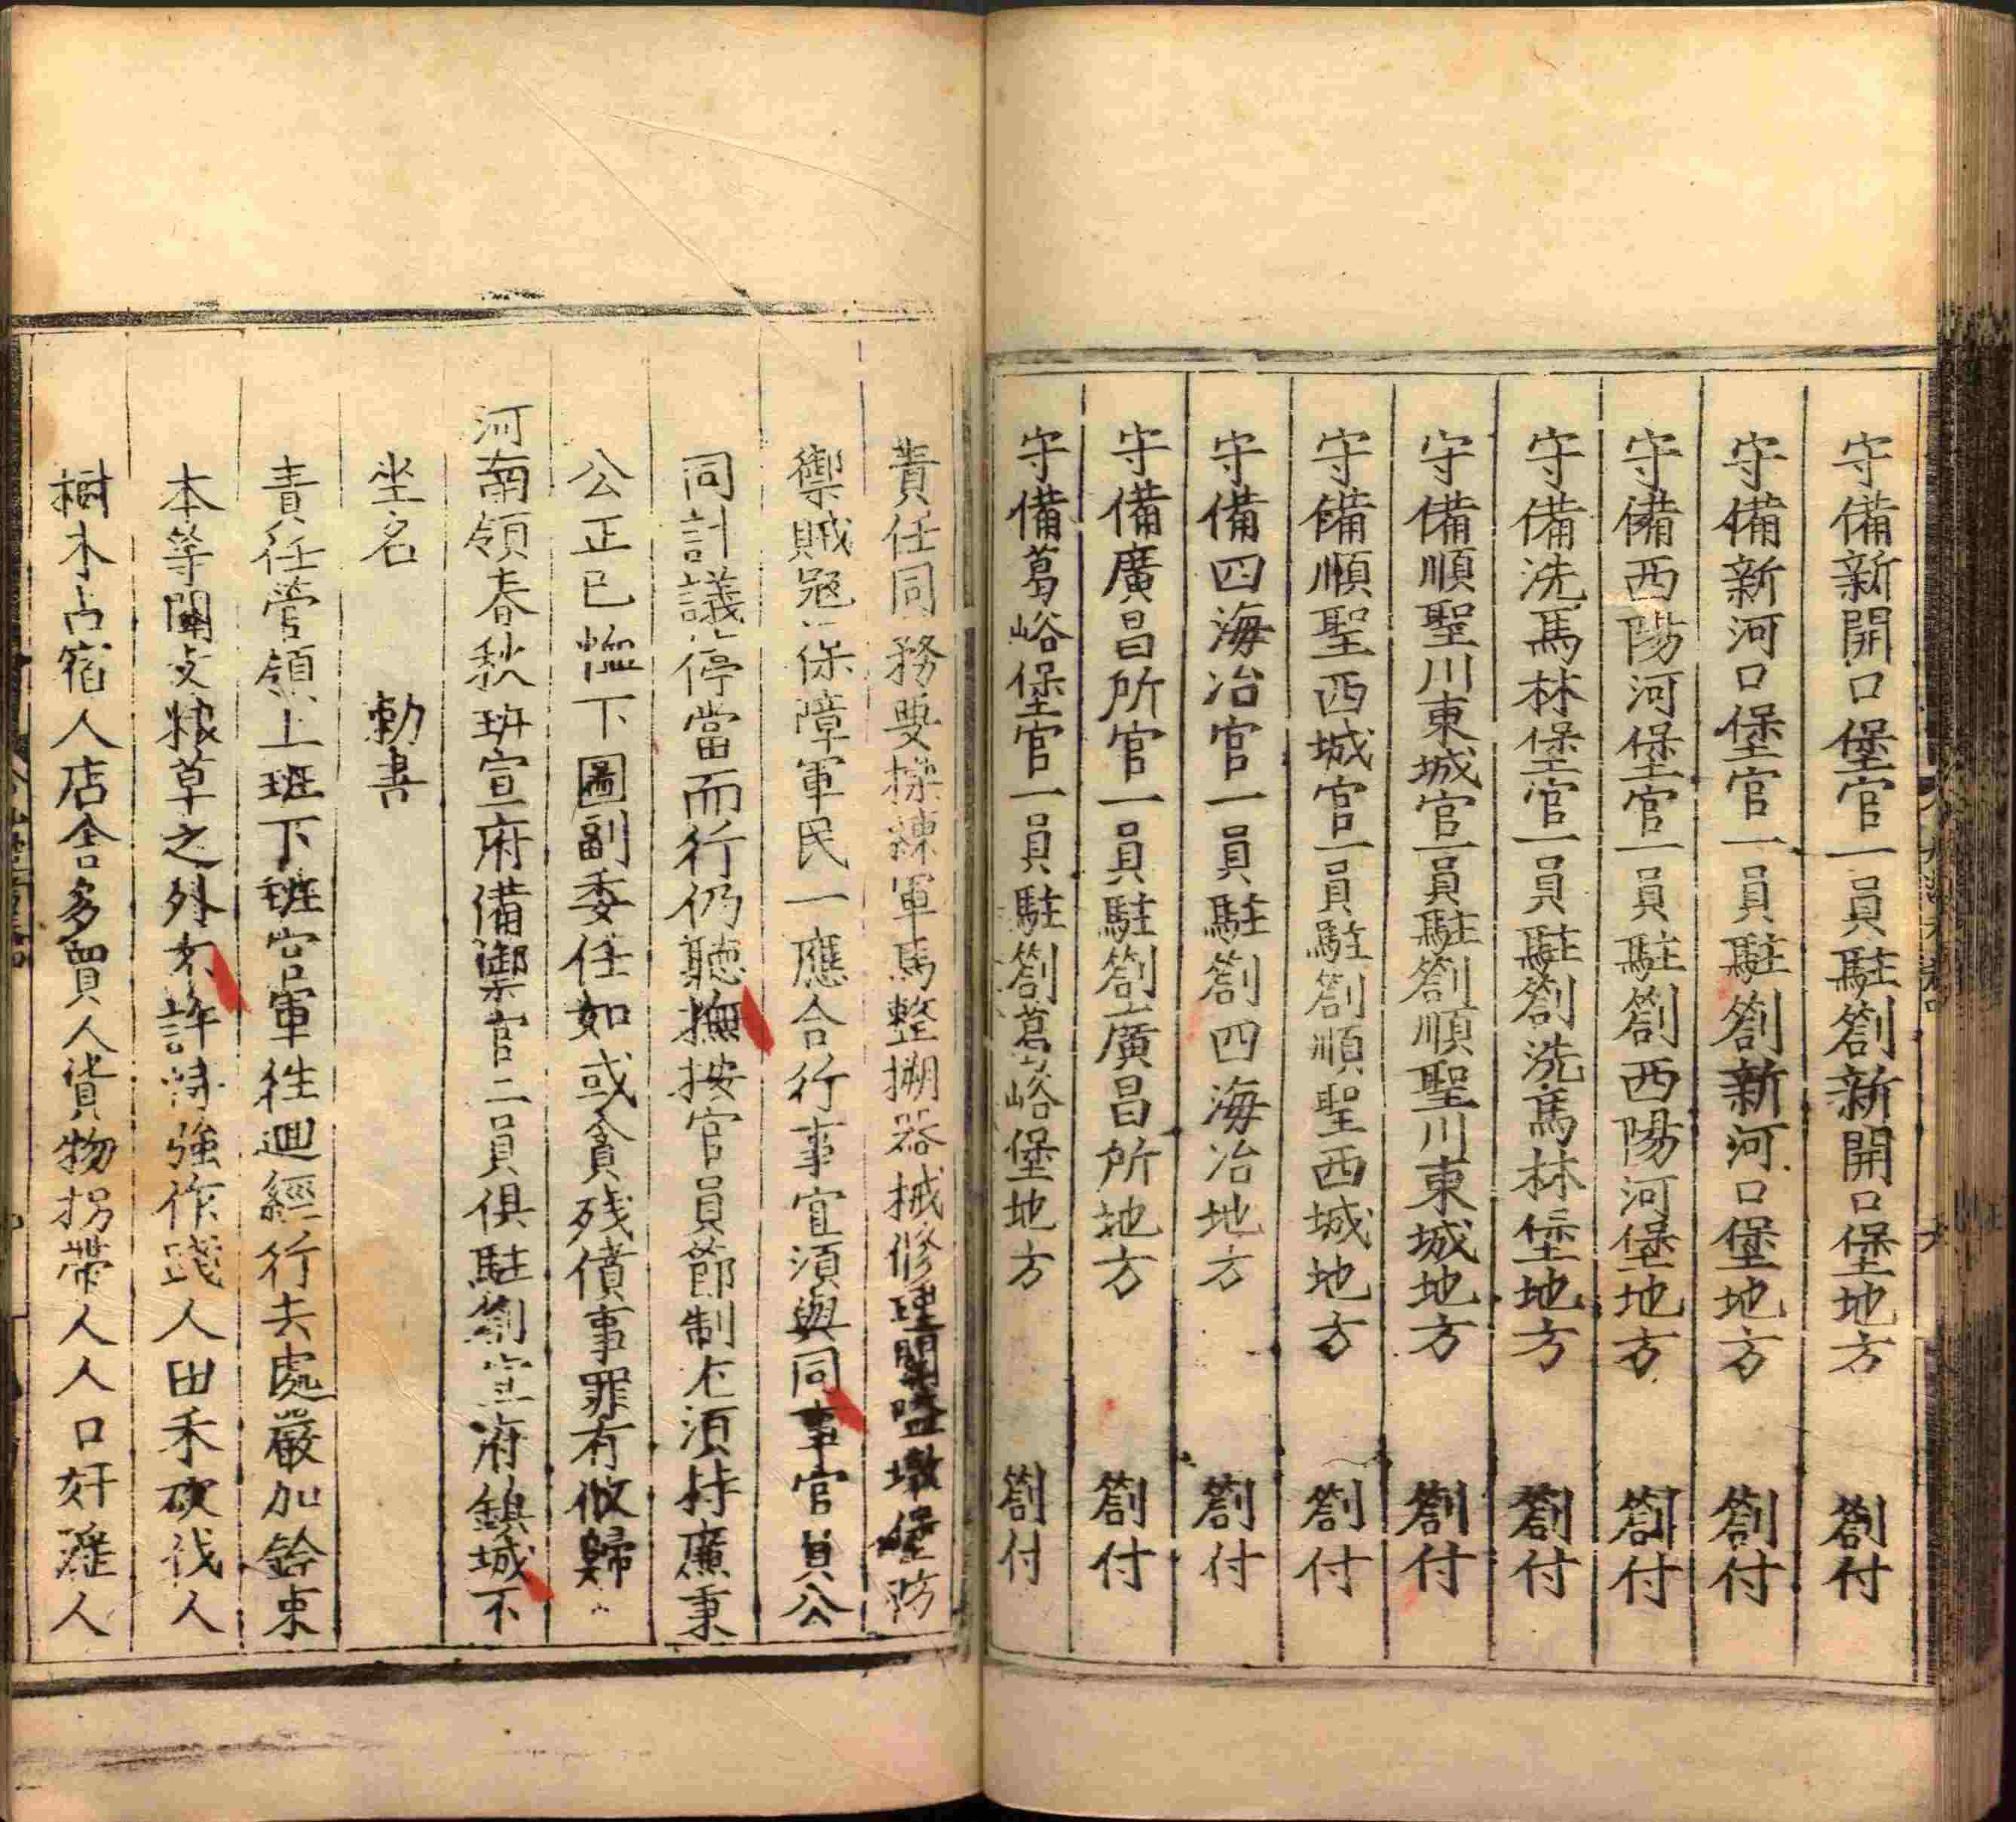 守備新開口堡官一員駐劄新開口堡地方 劄付
守備新河口堡官一員駐劄新河口堡地方 劄付
守備西陽河堡官一員駐劄西陽河堡地方 劄付
守備洗馬林堡官一員駐劄洗馬林堡地方 劄付
守備順聖川東城官一員駐劄順聖川東城地方 劄付
守備順聖西城官一員駐劄順聖西城地方 劄付
守備四海冶官一員駐劄四海冶地方 劄付
守備廣昌所官一員駐劄廣昌所地方 劄付
守備葛峪堡官一員駐劄葛峪堡地方 劄付
責任同務要操練軍馬整搠器械修理關隘墩堡防
禦賊寇保障軍民一應合行事宜須與同事官員公
同計議停當而行仍聽撫按官員節制不須持廉秉
公正己恤下圖副委任如或貪殘僨事罪有攸歸
河南領春秋班宣府備禦官二員俱駐劄宣府鎮城不
坐名 勅書
責任管領上班下班官軍徃迴經行去處嚴加鈐束
本等關支粮草之外不許特強作踐人田禾砍伐人
樹木占宿人店舍多買人貨物拐帶人人口奸淫人